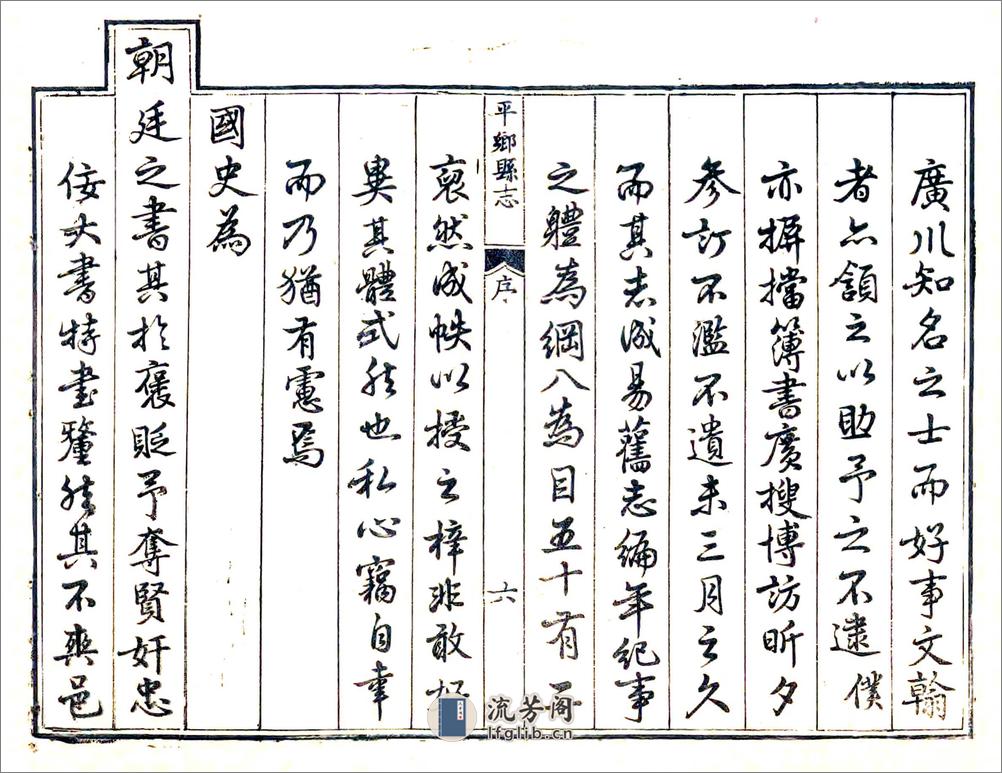 廣川知名之士而好事文翰
者亦頷之以助予之不逮僕
亦摒擋簿書廣搜博訪昕夕
參訂不濫不遺未三月之久
而其志成易舊志編年紀事
之體為綱八為目五十有
平鄉縣志 序 六
裒然成帙以授之梓非敢好
異其體式然也私心竊自幸
而乃猶有慮焉
國史為
朝廷之書其於褒貶予奪賢奸忠
佞大書特書釐然其不爽邑
流芳阁
lfglib.cn